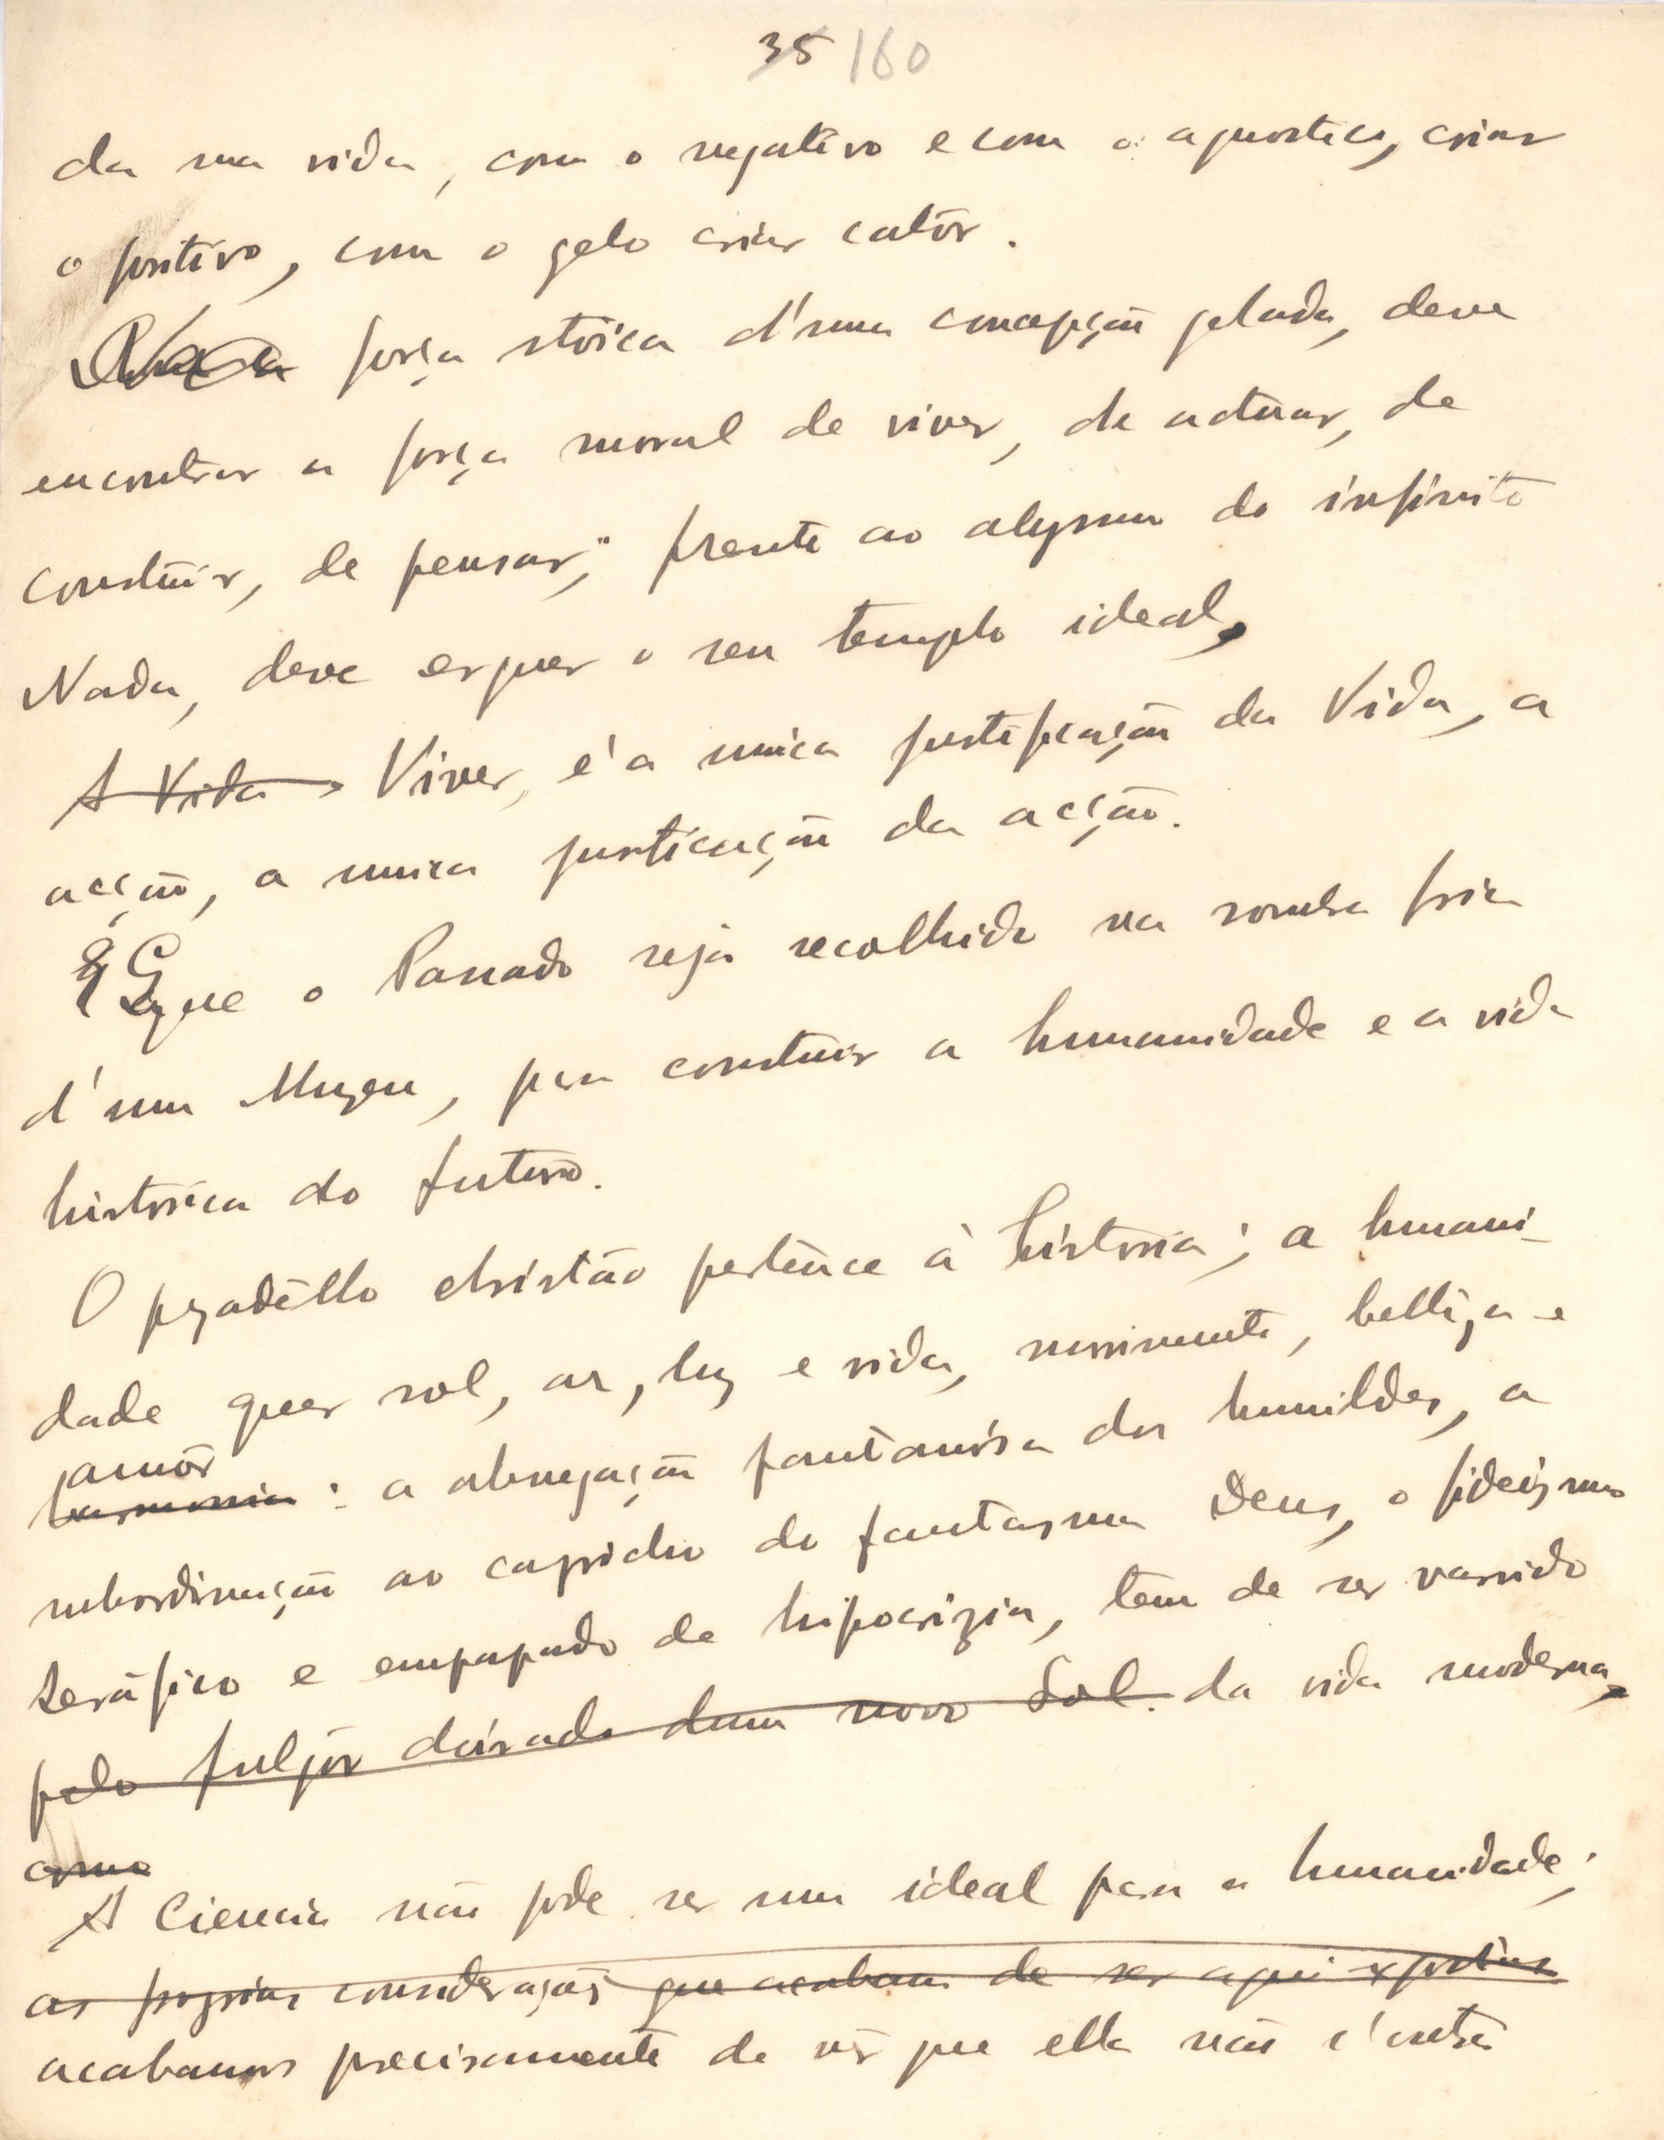 35 160
da sua vida, com o negativo e com o agnostico, criar
o positivo, com o gelo criar calôr.
força stoica d'uma concepção gelada, deve
encontrar a força moral de viver, de actuar, de
construir, de pensar; frente ao abysmo do infinito
Nada, deve erguer o seu templo ideal,
A Vida Viver, é a unica justificação da Vida, a
acção, a unica justicação da acção.
que o Passado seja recolhido na sombra fria
d'um Muzeu, pra construir a humanidade e a vida
historica do futuro.
O pezadêllo christão pertence à história; a humani-
dade quer sol, ar, luz e vida, movimento, belleza e
amôr
harmonia: a abnegação fantasista dos humildes, a
subordinação ao capricho do fantasma Deus, o fideizmo
seráfico e empapado de hipocrizia, tem de ser varrido
pelo fulgôr doirado dum novo Sol. da vida moderna,
como
A Ciencia não pode ser um ideal pra a humanidade;
as proprias considerações que acabam de ser aqui expostas
acabamos precisamente de vêr que ella não é outra